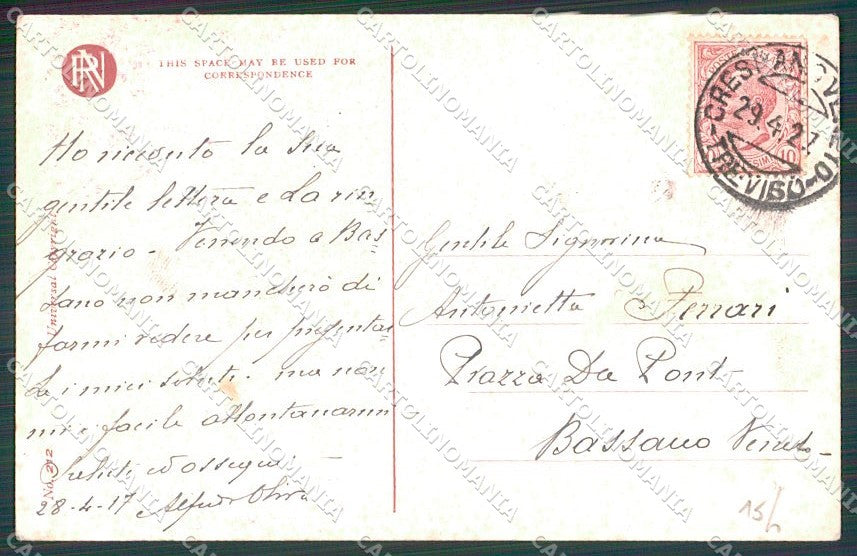 RN
THIS SPACE MAY BE USED FOR
CORRESPONDENCE
Ho ricevuto la sua
gentile lettera e La rin=
grazio. Venendo a Bas=
sano non mancherò di
farmi vedere per presentar
Le i miei saluti. ma non
mi è facile allontanarmi
Saluti ed ossequi
28-4-17 Alfredo
Universal Copyright
No. 212
Gentile Signorina
Antonietta Ferrari
Piazza Da Ponte
Bassano Veneto
CRESPANO VENETO
29.4.
(TREVISO)
10
15/
CARTOLINOMANIA